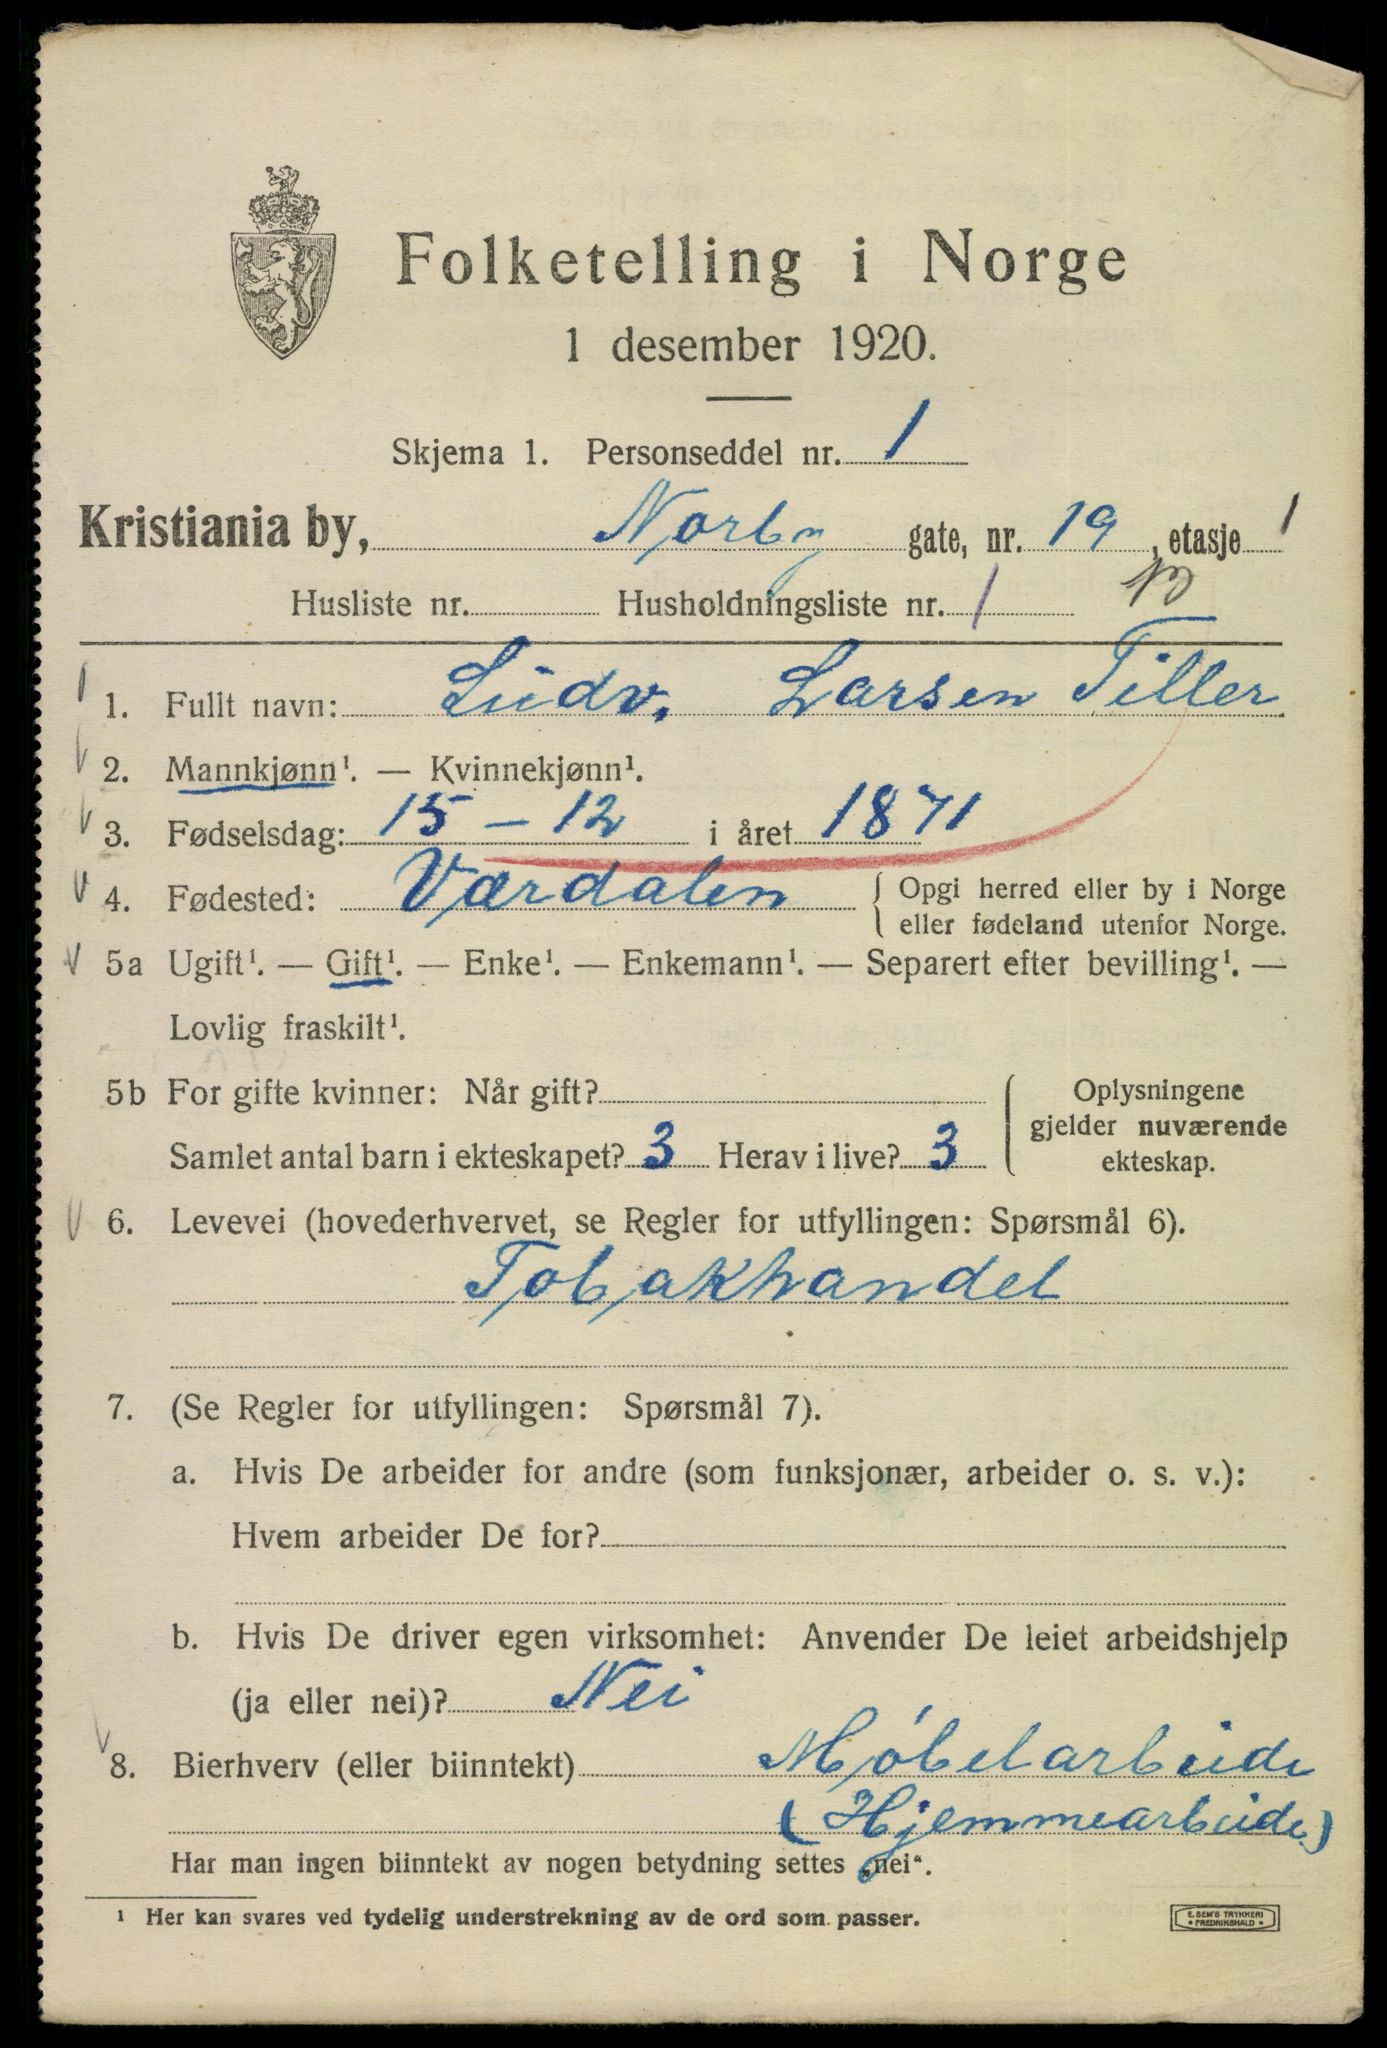 Folketelling i Norge
1 desember 1920.
Skjema 1. Personseddel nr. 1
Kristiania by, Norby gate, nr. 19, etasje 1
Husliste nr. Husholdningsliste nr. 1
1. Fullt navn: Ludv. Larsen Tiller
2. Mannkjønn¹. — Kvinnekjønn¹.
3. Fødselsdag: 15 – 12 i året 1871
4. Fødested: Værdalen { Opgi herred eller by i Norge
eller fødeland utenfor Norge.
5a Ugift¹. — Gift¹. — Enke¹. — Enkemann¹. — Separert efter bevilling¹. —
Lovlig fraskilt¹.
5b For gifte kvinner: Når gift?
Samlet antal barn i ekteskapet? 3 Herav i live? 3
Oplysningene
gjelder nuværende
ekteskap.
6. Levevei (hovederhvervet, se Regler for utfyllingen: Spørsmål 6).
Tobakhandel
7. (Se Regler for utfyllingen: Spørsmål 7).
a. Hvis De arbeider for andre (som funksjonær, arbeider o. s. v.):
Hvem arbeider De for?
b. Hvis De driver egen virksomhet: Anvender De leiet arbeidshjelp
(ja eller nei)? Nei
8. Bierhverv (eller biinntekt) Møbelarbeide
(Hjemmearbeide)
Har man ingen biinntekt av nogen betydning settes „nei“.
¹ Her kan svares ved tydelig understrekning av de ord som passer.
E. SEM'S TRYKKERI
• FREDRIKSHALD •